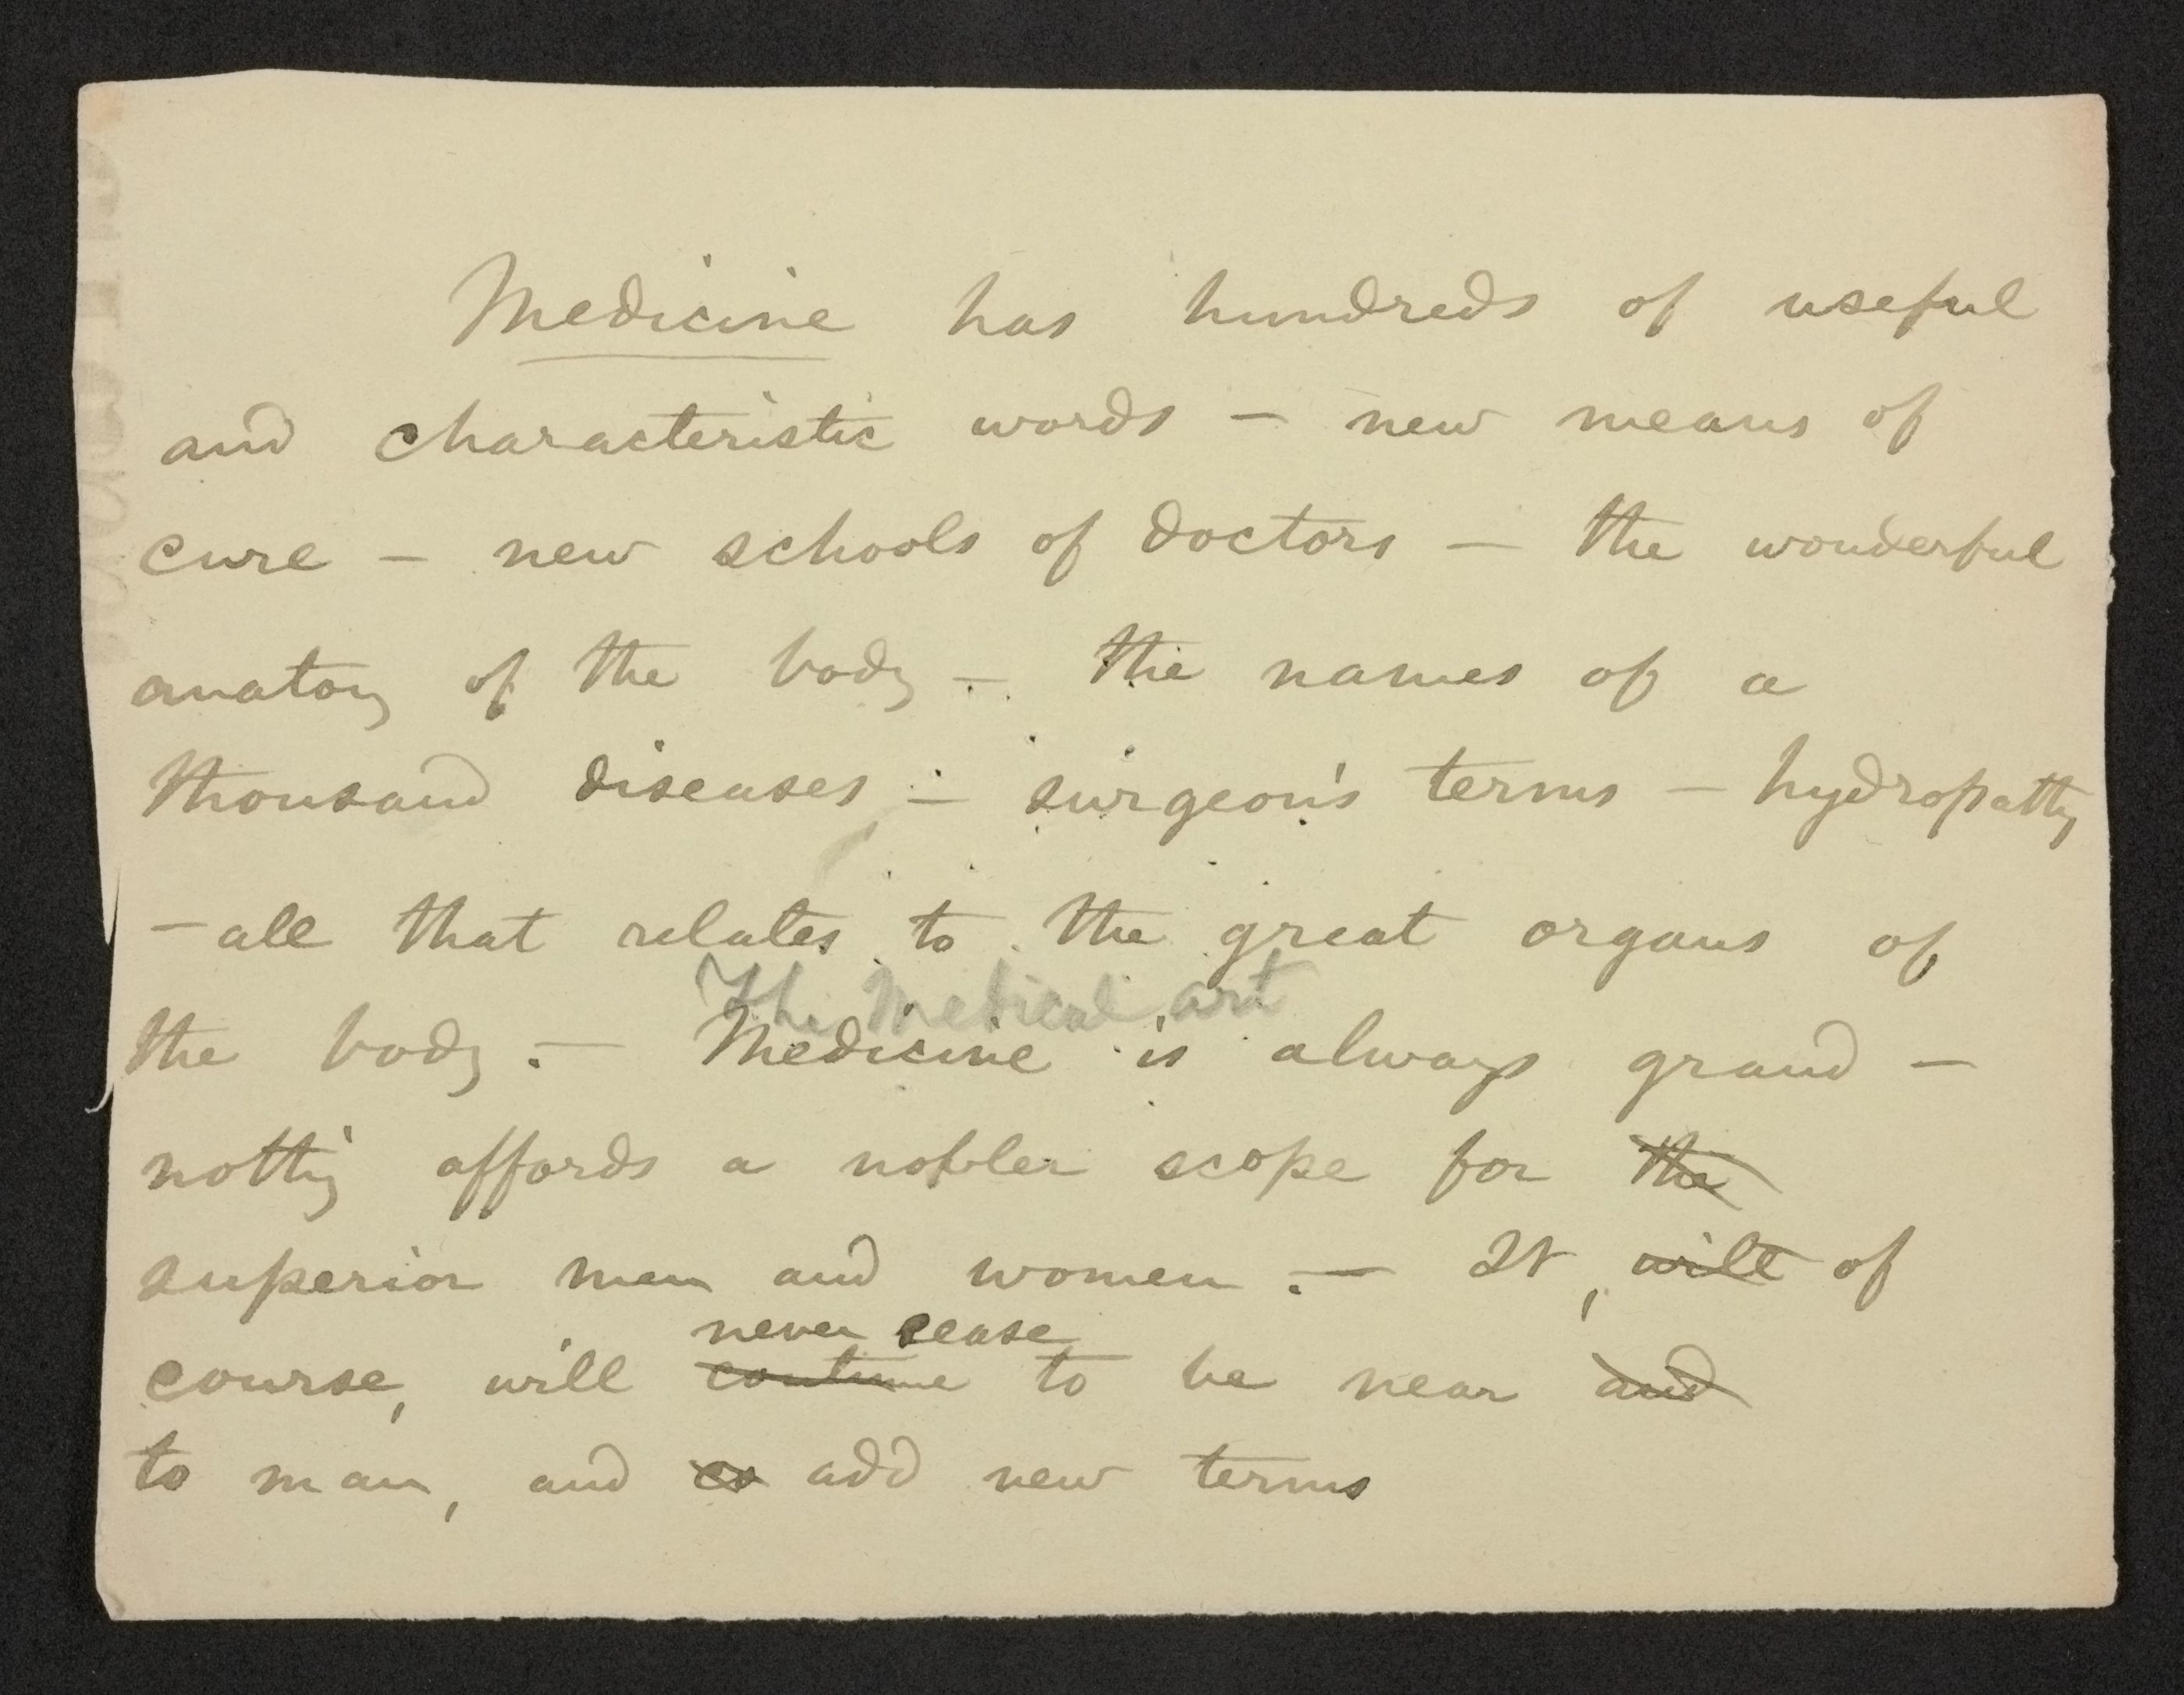 Medicine has hundreds of useful
and characteristic words — new means of
cure — new schools of doctors — the wonderful
anatomy of the body — the names of a
thousand diseases — surgeon's terms — hydropathy
— all that relates to the great organs of
The Medical art
the body. — Medicine is always grand —
nothing affords a nobler scope for the
superior men and women. — It, will of
never cease
course, will continue to be near and
to man, and add new terms